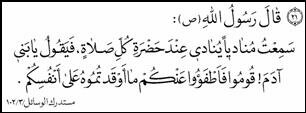 ﴿٢٦﴾ قَالَ رَسُولُ اللهِ (ص):
سَمِعْتُ مُنَادِياً يُنَادِي عِنْدَ حَضْرَةِ كُلِّ صَلَاةٍ، فَيَقُولُ يَا بَنِي
آدَمَ! قُومُوا فَأَطْفِؤُا عَنْكُمْ مَا أَوْقَدْتُمُوهُ عَلَىٰ أَنْفُسِكُمْ.
مستدرك الوسائل ١٠٢/٣